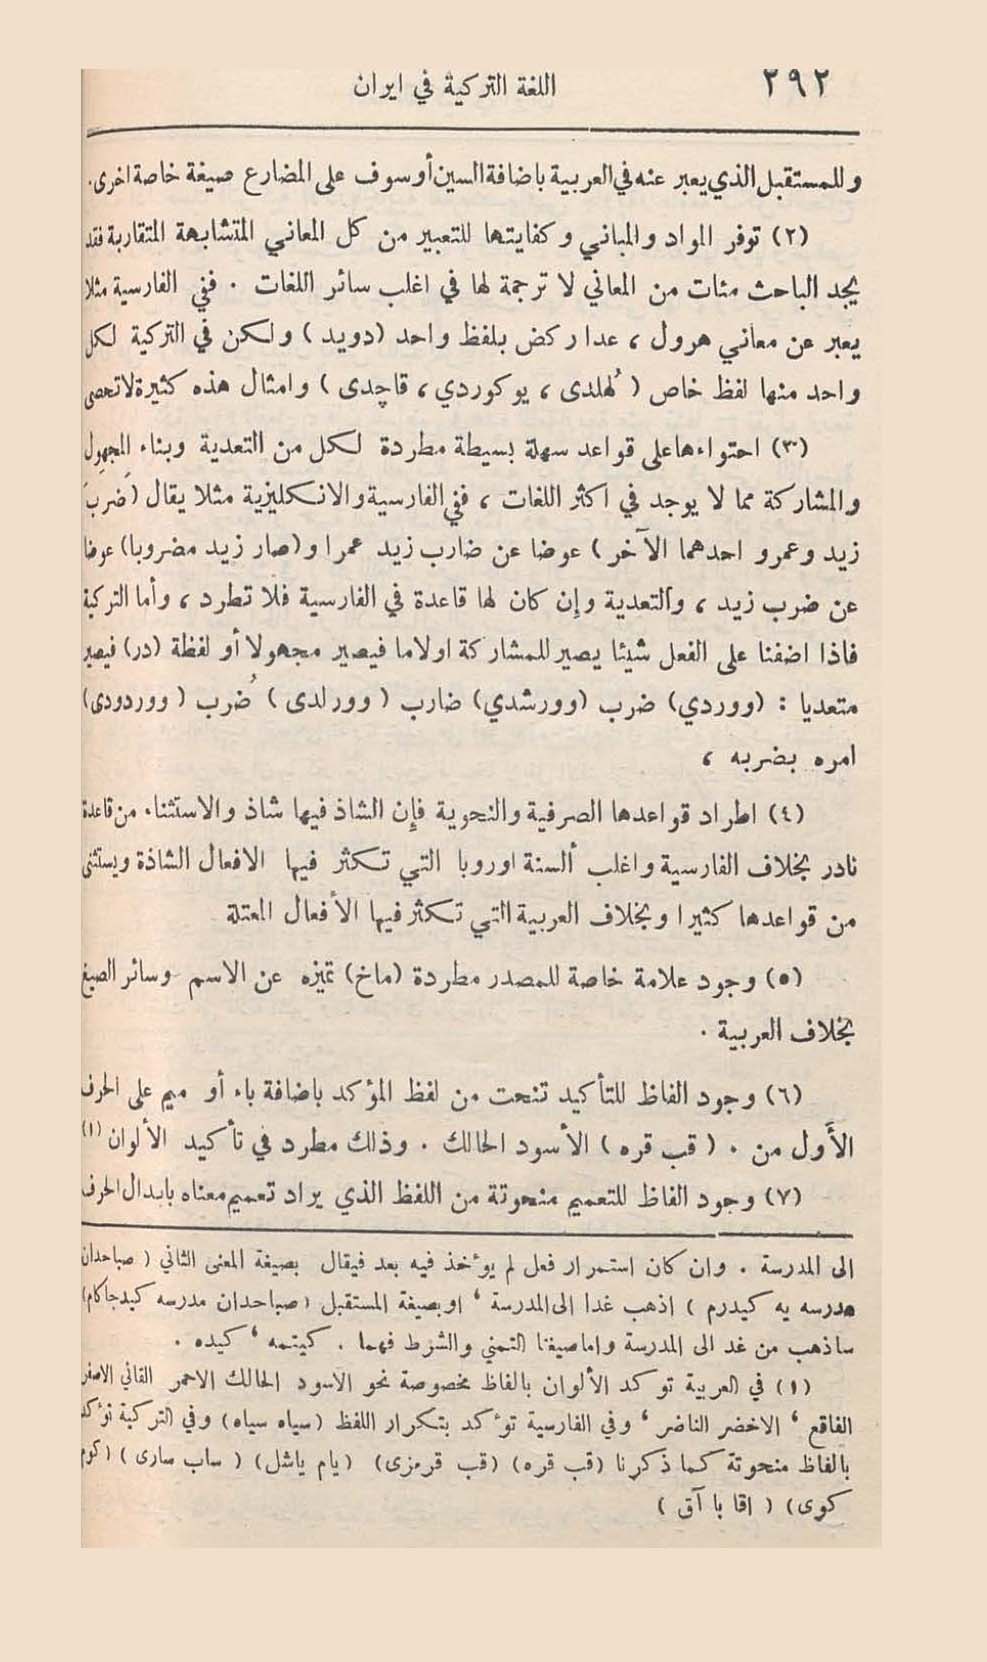 ٢٩٢
اللغة التركية في ايران
وللمستقبل الذي يعبر عنه في العربية باضافة السين أو سوف على المضارع صيغة خاصة اخرى.
(٢) توفر المواد والمباني وكفايتها للتعبير من كل المعاني المتشابهة المتقاربة فقد
يجد الباحث مئات من المعاني لا ترجمة لها في اغلب سائر اللغات . ففي الفارسية مثلا
يعبر عن معاني هرول ، عدا ركض بلفظ واحد (دويد) ولكن في التركية لكل
واحد منها لفظ خاص ( لُهلدى ، يوكوردي ، قاچدى ) وامثال هذه كثيرة لا تحصى
(٣) احتواءها على قواعد سهلة بسيطة مطردة لكل من التعدية وبناء المجهول
والمشاركة مما لا يوجد في اكثر اللغات ، ففي الفارسية والانكليزية مثلا يقال (ضَرَبَ
زيد وعمرو احدهما الآخر ) عوضا عن ضارب زيد عمرا و(صار زيد مضروبا) عوضا
عن ضرب زيد ، والتعدية وإن كان لها قاعدة في الفارسية فلا تطرد ، وأما التركية
فاذا اضفنا على الفعل شيئا يصير للمشاركة اولاما فيصير مجهولا أو لفظة (در) فيصير
متعديا : (ووردي) ضرب (وورشدي) ضارب ( وورلدى ) ضُرب ( ووردودى)
امره بضربه ،
(٤) اطراد قواعدها الصرفية والنحوية فإن الشاذ فيها شاذ والاستثناء من قاعدة
نادر بخلاف الفارسية واغلب ألسنة اوروبا التي تكثر فيها الافعال الشاذة ويستثنى
من قواعدها كثيرا وبخلاف العربية التي تكثر فيها الأفعال المعتلة
(٥) وجود علامة خاصة للمصدر مطردة (ماخ) تميزه عن الاسم وسائر الصيغ
بخلاف العربية .
(٦) وجود الفاظ للتأكيد تنحت من لفظ المؤكد باضافة باء أو ميم على الحرف
الأَول من . ( قب قره ) الأسود الحالك . وذلك مطرد في تأكيد الألوان (١)
(٧) وجود الفاظ للتعميم منحوتة من اللفظ الذي يراد تعميم معناه بابدال الحرف
الى المدرسة . وان كان استمرار فعل لم يؤخذ فيه بعد فيقال بصيغة المعنى الثاني ( صباحدان
مدرسه يه كيدرم ) اذهب غدا الى المدرسة ‘ او بصيغة المستقبل (صباحدان مدرسه كيدجاكام)
ساذهب من غد الى المدرسة واما صيغتا التمني والشرط فهما . كيتمه ‘ كيده .
(١) في العربية توكد الألوان بالفاظ مخصوصة نحو الاسود الحالك الاحمر القاني الاصفر
الفاقع ‘ الاخضر الناضر ‘ وفي الفارسية تؤكد بتكرار اللفظ (سياه سياه) وفي التركية تؤكد
بالفاظ منحوتة كما ذكرنا (قب قره) (قب قرمزى) (يام ياشل) ( ساب سارى ) (كوم
كوى) ( اقا با آق )